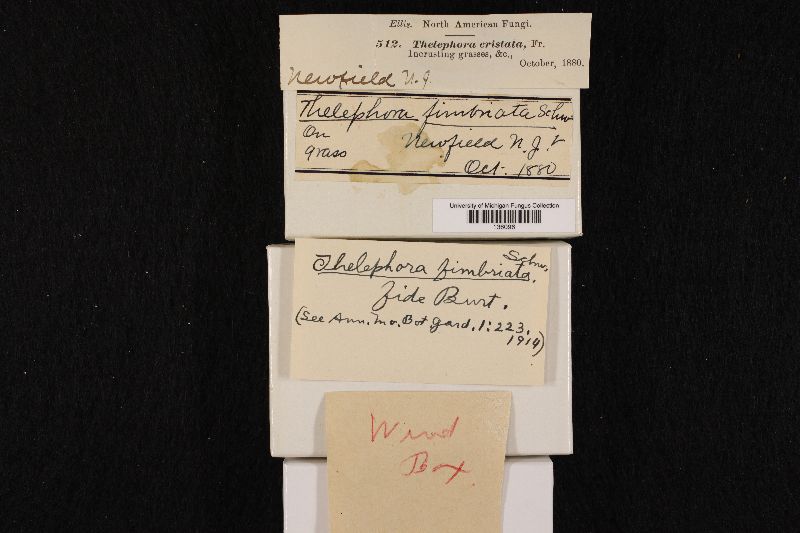 Ellis. North American Fungi.
512. Thelephora cristata, Fr.
Incrusting grasses, &c.,
October, 1880.
Newfield N.J.
Thelephora fimbriata Schw.
On
grass
Newfield N.J.
Oct. 1880
University of Michigan Fungus Collection
Thelephora fimbriata. Schw.
fide Burt.
(See Ann. Mo. Bot. Gard. 1:223.
1914)
Box